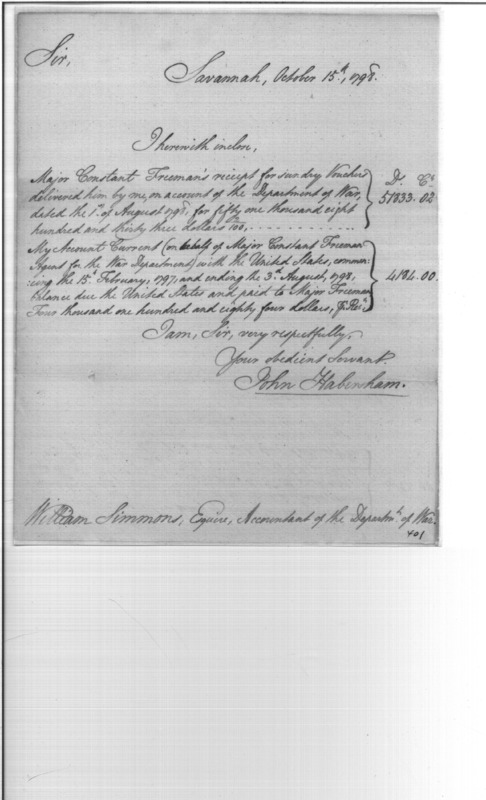 Sir,
Savannah, October 15th, 1798.
I herewith inclose,
Major Constant Freeman's receipt for sundry Vouchers
delivered him by me, on account of the Department of War,
dated the 1st of August 1798, for fifty one thousand eight
hundred and thirty three dollars 02/100,
Ds. Cs.
51833.02
My Account Current (on behalf of Major Constant Freeman
Agent for the War Department) with the United States, commen-
cing the 15th February, 1797, and ending the 3rd August, 1798,
balance due the United States and paid to Major Freeman
Four thousand one hundred and eighty four dollars,
4184.00.
I am, Sir, very respectfully,
Your obedient Servant.
John Habersham.
William Simmons, Esquire, Accountant of the Departmt. of War.
401